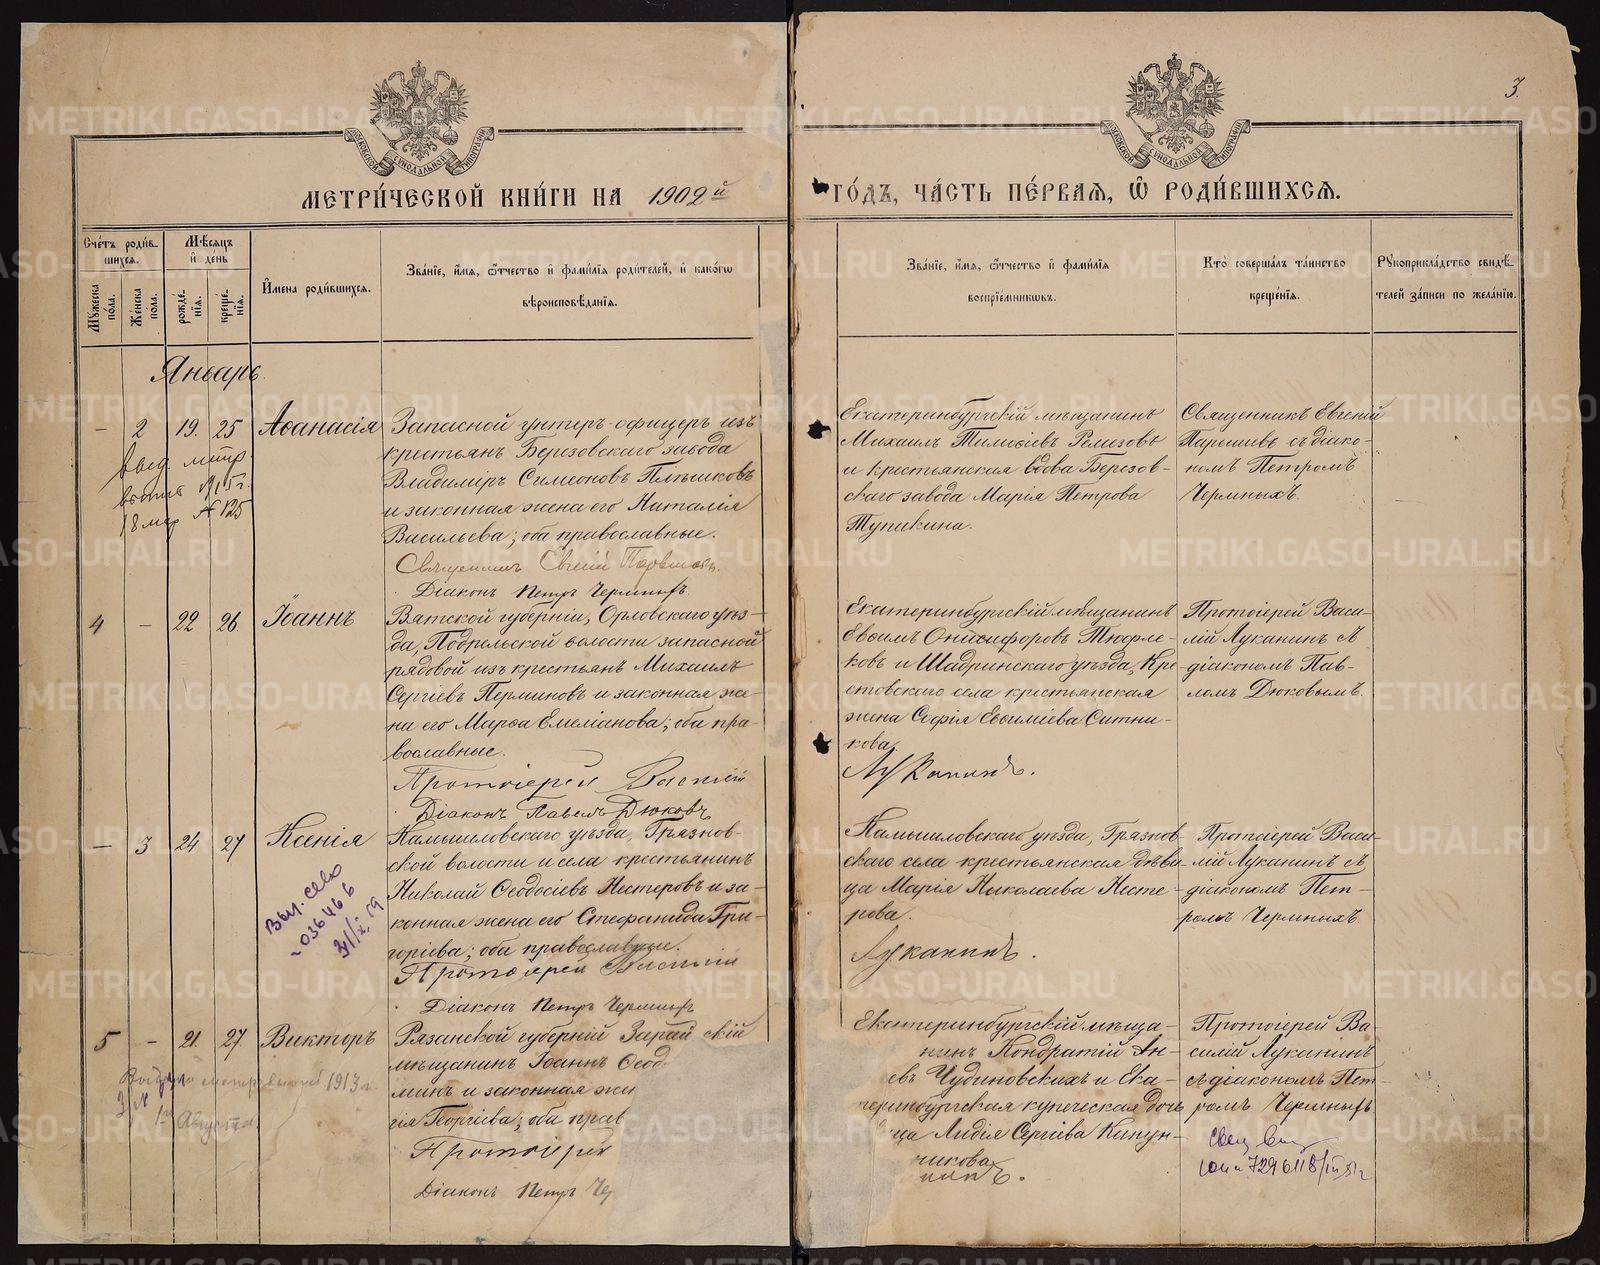 3.
МОСКОВСКОЙ СѴНОДАЛЬНОЙ ТИПОГРАФІИ
МОСКОВСКОЙ СѴНОДАЛЬНОЙ ТИПОГРАФІИ
МЕТРИ́ЧЕСКОЙ КНИ́ГИ НА 1902й ГО́ДЪ, ЧА́СТЬ ПЕ́РВАЯ, Ѽ РОДИ́ВШИХСЯ.
Сче́тъ роди́вшихся.
Мꙋ́жеска по́ла.
Же́нска по́ла.
Мѣ́сяцъ и҆ де́нь
рожде́нїя.
креще́нїя.
И҆мена роди́вшихся.
Зва́нїе, и҆́мя, ѻ҆́тчество и҆ фами́лїя роди́телей, и҆ како́гѡ
вѣроисповѣ́данїя.
Зва́нїе, и҆́мя, ѻ҆́тчество и҆ фами́лїя
воспрїе́мникѡвъ.
Кто̀ соверша́лъ та́инство
креще́нїя.
Рꙋкоприкла́дство свидѣ́-
телей за́писи по жела́нїю.
Январь
- 2 19. 25 Аѳанасія
Запасной унтеръ-офицеръ изъ
крестьянъ Березовскаго завода
Владиміръ Симеоновъ Пьянковъ
и законная жена его Наталія
Васильева; оба православные.
Священникъ Евгеній
Діаконъ Петръ Черемныхъ
Екатеринбургскій мѣщанинъ
Михаилъ Тимоѳіевъ Ремизовъ
и крестьянская вдова Березов-
скаго завода Марія Петрова
Тупикина.
Священникъ Евгеній
съ діако-
номъ Петромъ
Черемныхъ
18 мар № 125
4 - 22 26. Іоаннъ
Вятской губерніи, Орловскаго уѣз-
да, Подрельской волости запасной
рядовой изъ крестьянъ Михаилъ
Сергіевъ Перминовъ и законная же-
на его Марѳа Емеліанова; оба пра-
вославные.
Протоіерей Василій
Діаконъ Павелъ Дюковъ
Екатеринбургскій мѣщанинъ
Евѳимъ Онисифоровъ Тюфле-
ковъ и Шадринскаго уѣзда, Кре-
стовскаго села крестьянская
жена Софія Евѳиміева Ситни-
кова.
Луканинъ.
Протоіерей Васи-
лій Луканинъ съ
діакономъ Пав-
ломъ Дюковымъ.
- 3 24 27 Ксенія
Камышловскаго уѣзда, Грязнов-
ской волости и села крестьянинъ
Николай Ѳеодосіевъ Нестеровъ и за-
конная жена его Стефанида Гри-
горіева; оба православные.
Протоіерей Василій
Діаконъ Петръ Черемныхъ
Камышловскаго уѣзда, Грязнов-
скаго села крестьянская дѣви-
ца Марія Николаева Несте-
рова.
Луканинъ.
Протоіерей Васи-
лій Луканинъ съ
діакономъ Пет-
ромъ Черемныхъ
5 - 21. 27 Викторъ
Рязанской губерніи Зарай скій
мѣщанинъ Іоаннъ Ѳеод
минъ и законная жен
гія Георгіева; оба прав
Протоіерей
Діаконъ Петръ Че
Екатеринбургскій мѣща-
нинъ Кондратій Ан-
евъ Чудиновскихъ и Ека-
теринбургская купеческая дочь
ца Лидія Сергіева Кипун-
никова
нинъ.
Протоіерей Ва-
силій Луканинъ
съ діакономъ Пет-
ромъ Черемныхъ
1913 г.
Августа
METRIKI.GASO-URAL.RU